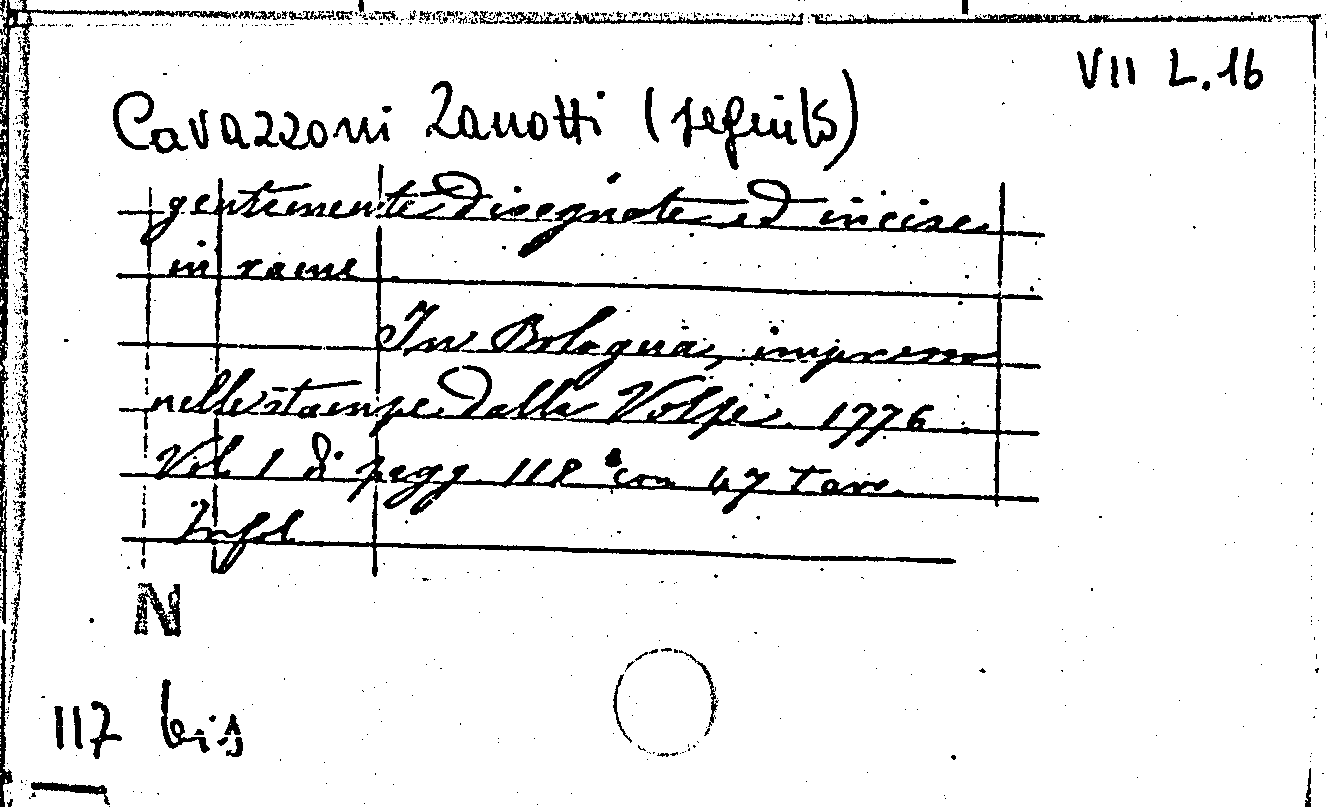 VII L.16
Cavazzoni Zanotti (seguito)
gentemente disegnate ed incise
in rame
In Bologna, impresso
nelle stampe dalla Volpe. 1776
Vol 1 di pagg. 118 con 47 tav.
Infol
N
117 bis